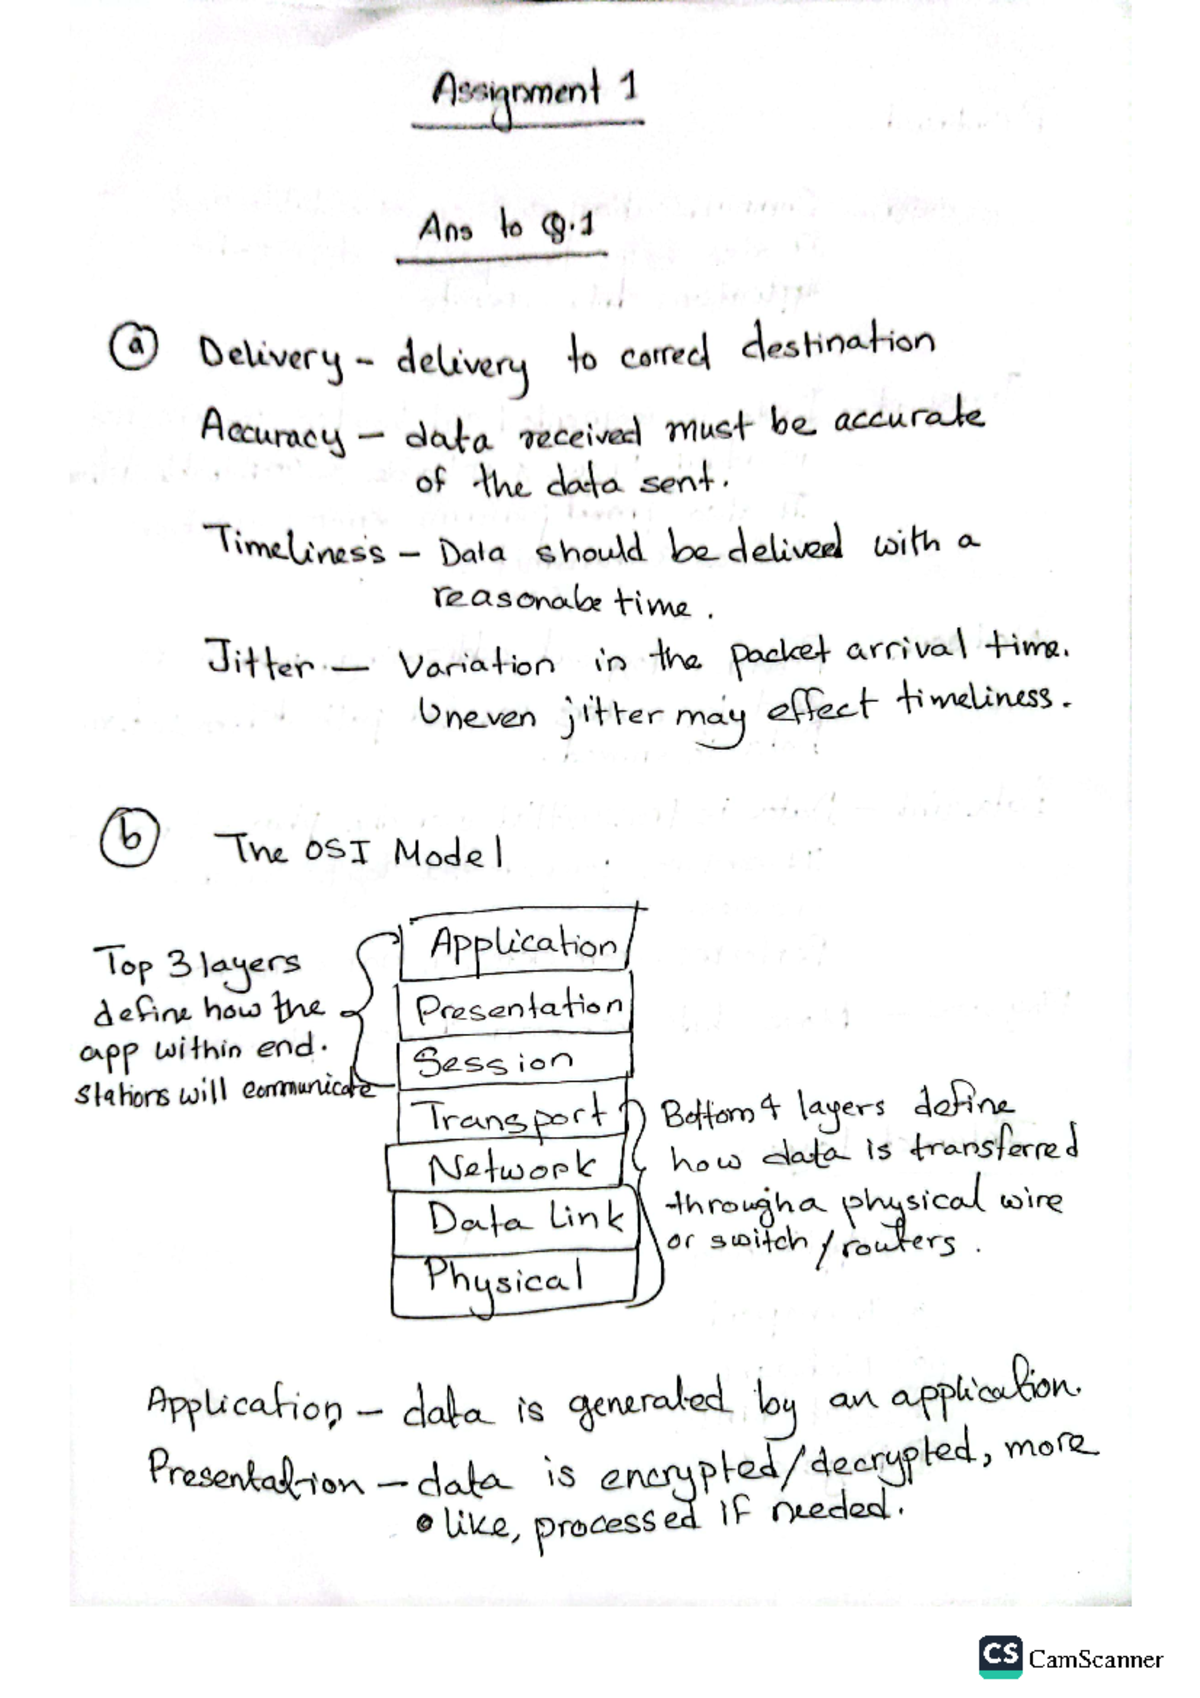 Assignment 1
Ans to Q.1
(a) Delivery - delivery to correct destination
Accuracy - data received must be accurate
of the data sent.
Timeliness - Data should be delived with a
reasonabe time.
Jitter - Variation in the packet arrival time.
Uneven jitter may effect timeliness.
(b) The OSI Model
Top 3 layers
define how the
app within end.
stations will communicate
Application
Presentation
Session
Transport
Network
Data Link
Physical
Bottom 4 layers define
how data is transferred
through a physical wire
or switch / routers.
Application - data is generated by an application.
Presentation - data is encrypted/decrypted, more
like, processed if needed.
CS CamScanner